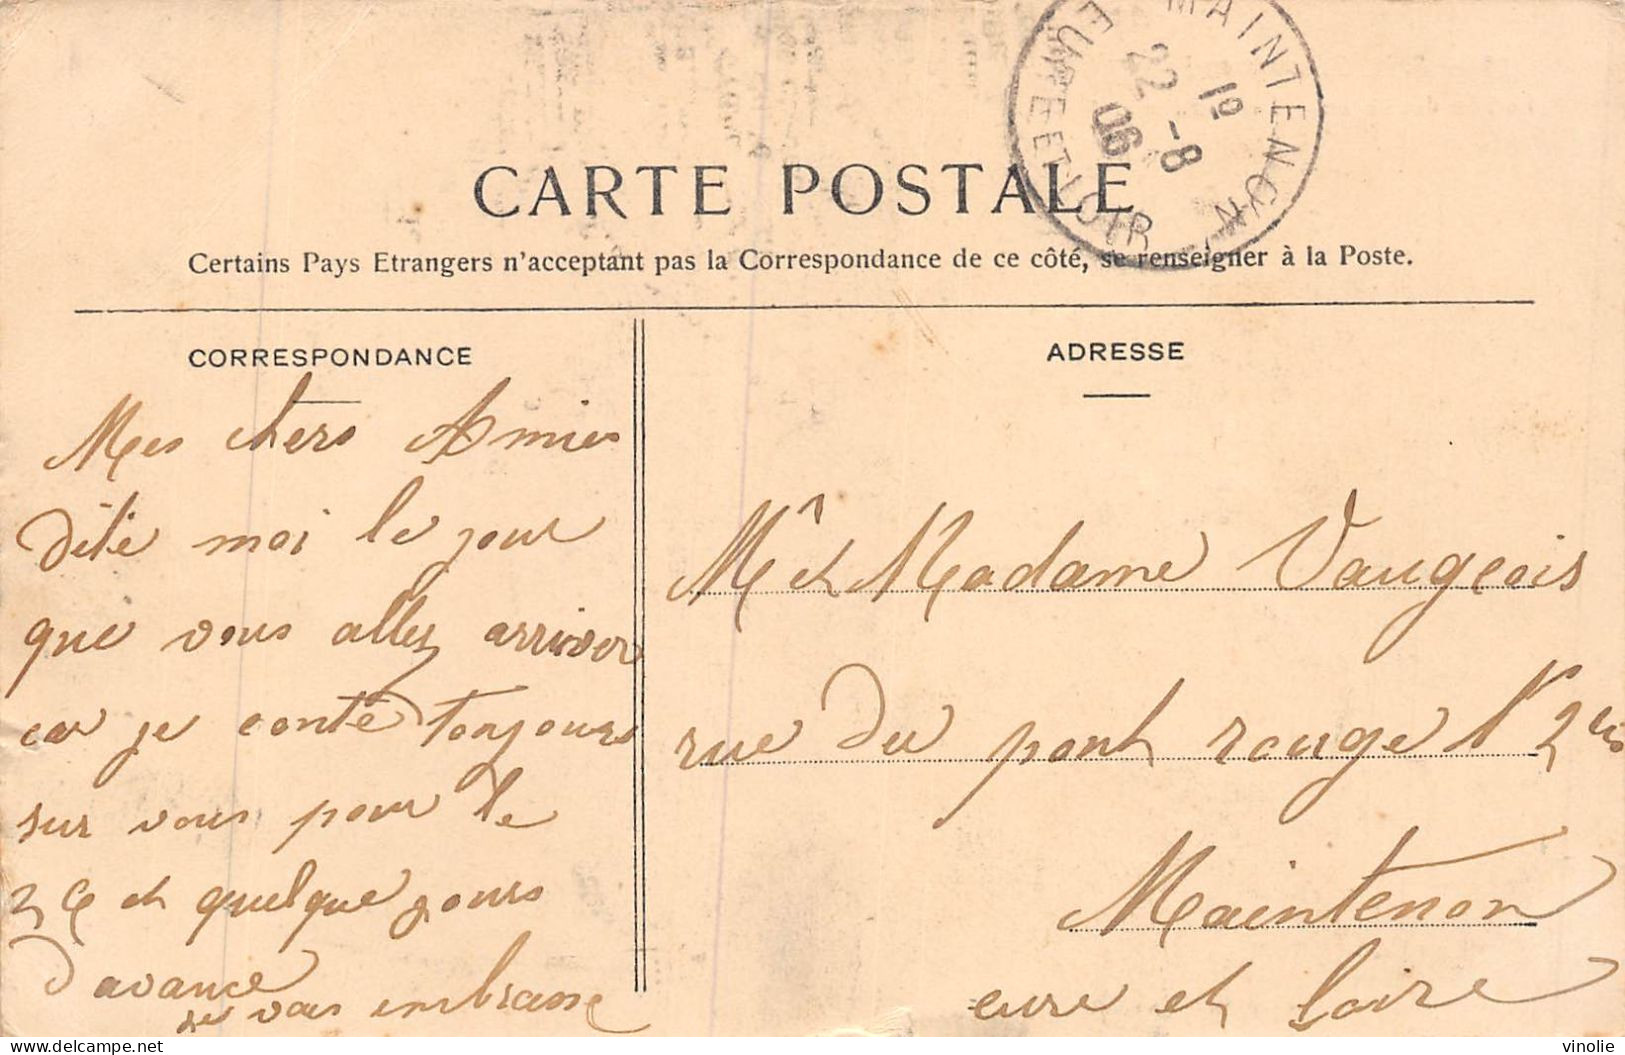 MAINTENON
EURE ET LOIR
1e
22 -8
06
CARTE POSTALE
Certains Pays Etrangers n'acceptant pas la Correspondance de ce côté, se renseigner à la Poste.
CORRESPONDANCE
Mes chers Amies
dite moi le jour
que vous allez arriver
car je conte toujours
sur vous pour le
26 et quelque jours
d'avance
je vous embrasse
ADRESSE
Mr et Madame Vaugeois
rue du pont rouge N 2
Maintenon
eure et Loire
delcampe.net
vinolie